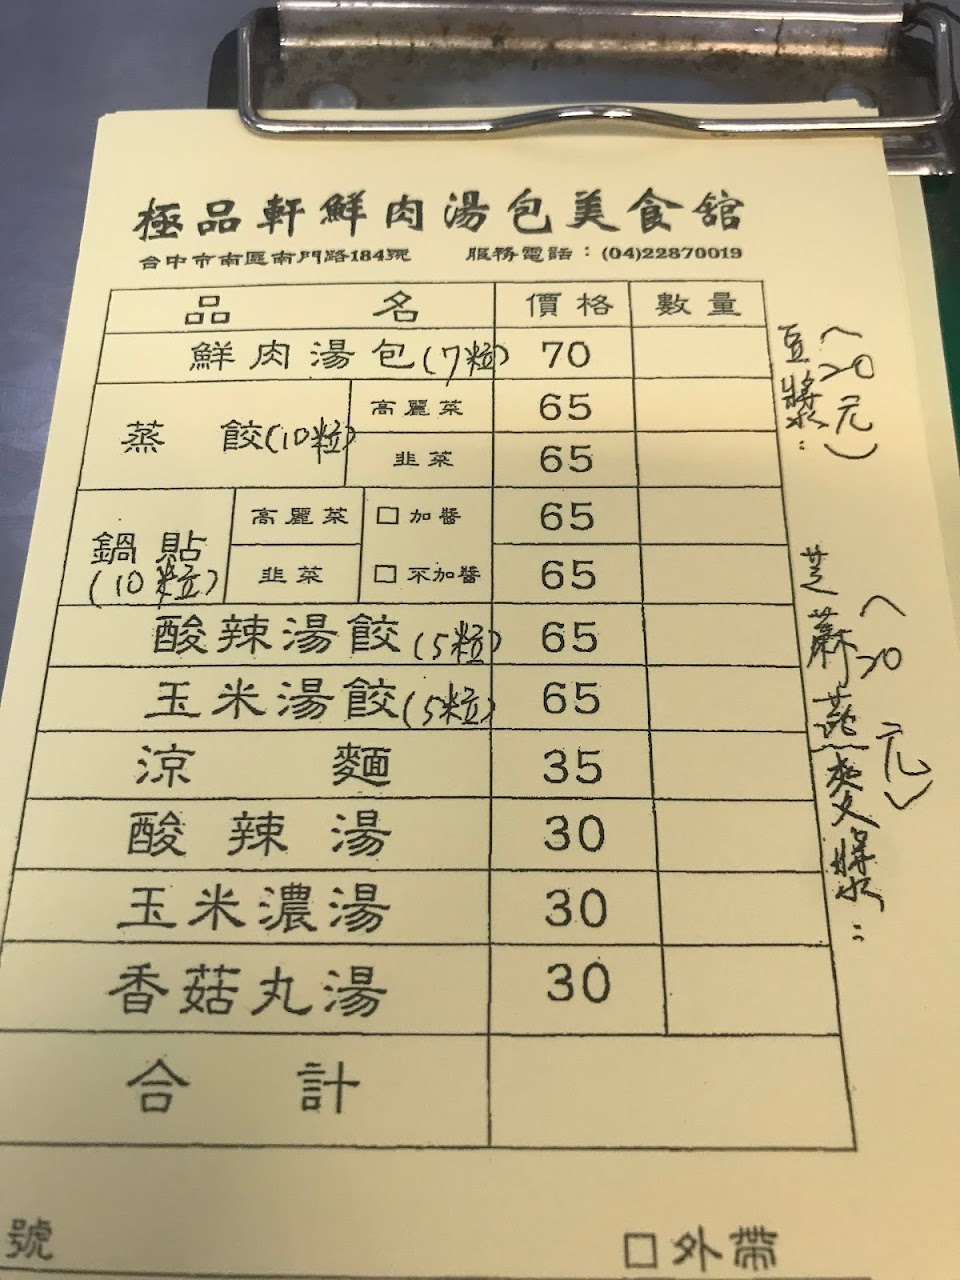 極品軒鮮肉湯包美食舘
台中市南區南門路184號 服務電話：(04)22870019
品名 價格 數量
鮮肉湯包(7粒) 70
蒸餃(10粒) 高麗菜 65
韭菜 65
鍋貼(10粒) 高麗菜 □加醬 65
韭菜 □不加醬 65
酸辣湯餃(5粒) 65
玉米湯餃(5粒) 65
涼麵 35
酸辣湯 30
玉米濃湯 30
香菇丸湯 30
合計
號 □外帶
豆漿：
(20元)
芝蔴燕麥漿：
(20元)